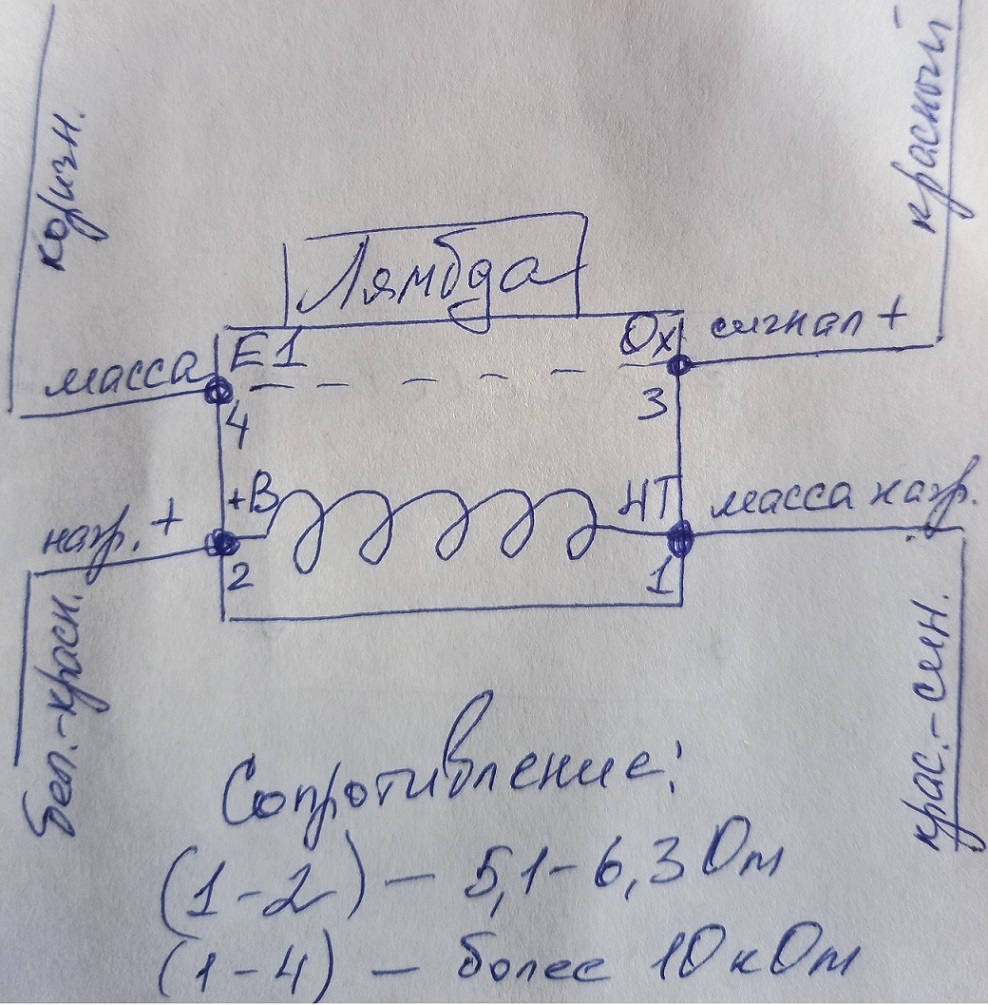 коризн.
красный
Лямбда
масса
E1
Ox
сигнал +
4
3
нагр. +
+B
HT
масса нагр.
2
1
бел.-красн.
крас.-син.
Сопротивление:
(1-2) — 5,1-6,3 Ом
(1-4) — более 10 кОм